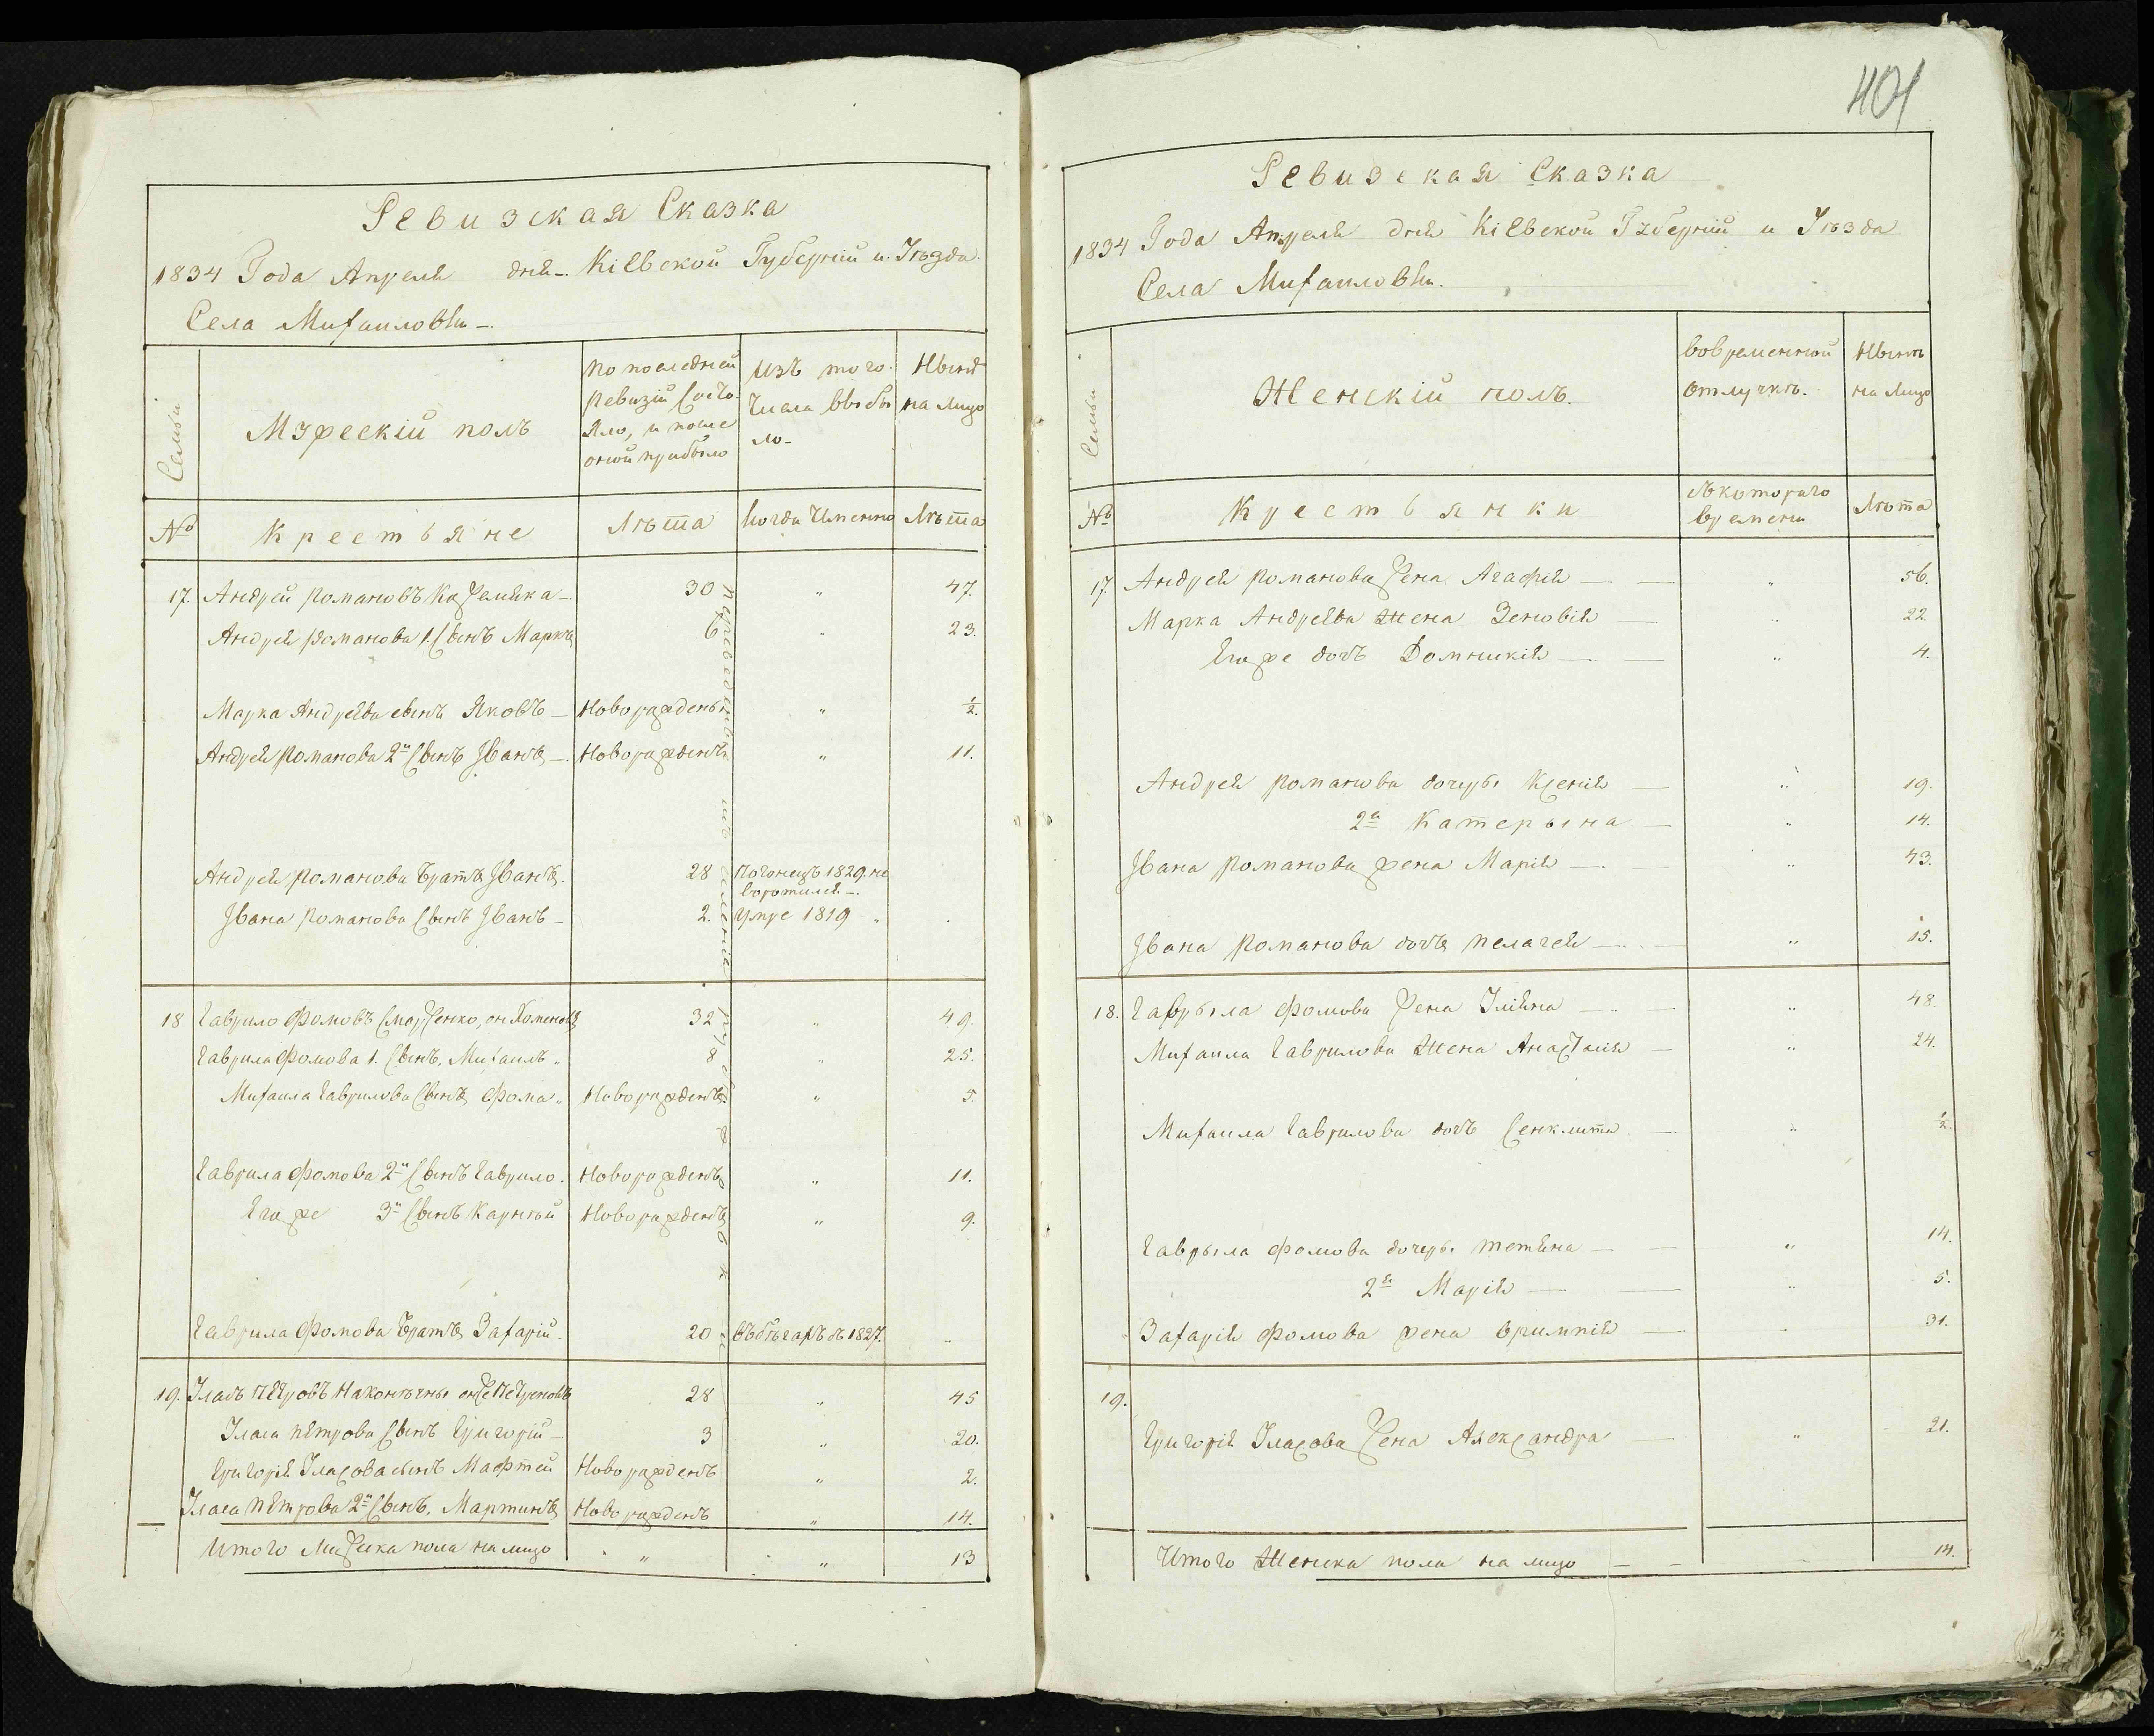 401
Ревизская Сказка
1834 Года Апреля дня Кіевской Губерніи и Уѣзда
Села Михаиловки
Семьи
Мужескій полъ
по последней ревизіи состояло, и после оной прибыло
Изъ того числа выбыло
Нынѣ на лицо
№
Крестьяне
Лѣта
Когда Именно
Лѣта
17. Андрей Романовъ 30 " 47.
Андрея Романова 1. Сынъ Марко 6 " 23.
Марка Андреева сынъ Яковъ Новорожденъ " ½.
Андрея Романова 2й Сынъ Иванъ Новорожденъ " 11.
Андрея Романова братъ Иванъ 28 1829 не воротился
Ивана Романова Сынъ Иванъ 2. Умре 1819 "
18 Гаврило Фомовъ 32 " 49.
Гаврила Фомова 1. Сынъ Михаилъ 8 " 25.
Михаила Гаврилова Сынъ Фома Новорожденъ " 5.
Гаврила Фомова 2й Сынъ Гаврило Новорожденъ " 11.
Егоже 3й Сынъ Карпій Новорожденъ " 9.
Гаврила Фомова братъ Захарій 20 въ бѣгахъ съ 1827.
19. Уласъ Петровъ 28 " 45
Уласа Петрова Сынъ Григорій 3 " 20.
Григорія Уласова сынъ Мафтей Новорожденъ " 2.
Уласа Петрова 2й Сынъ Мартинъ Новорожденъ " 14.
Итого Мужеска пола на лицо " " 13
Ревизская Сказка
1834 Года Апреля дня Кіевской Губерніи и Уѣзда
Села Михаиловки.
Семьи
Женскій полъ.
Вовременной отлучкѣ.
Нынѣ на лицо
№
Крестьянки
съ котораго времени
Лѣта
17. Андрея Романова жена Агафія " 56.
Марка Андреева жена Зеновія " 22.
Егоже дочь Домникія " 4.
Андрея Романова дочеры Ксенія " 19.
2я Катерына " 14.
Ивана Романова жена Марія " 43.
Ивана Романова дочь Пелагея " 15.
18. Гаврыла Фомова жена Уліяна " 48.
Михаила Гаврилова жена Анастасія " 24.
Михаила Гаврилова дочь Сенклита " ½.
Гаврыла Фомова дочеры Тетяна " 14.
2я Марія " 5.
Захарія Фомова жена 31.
19.
Григорія Уласова жена Александра " 21.
Итого Женска пола на лицо 14.